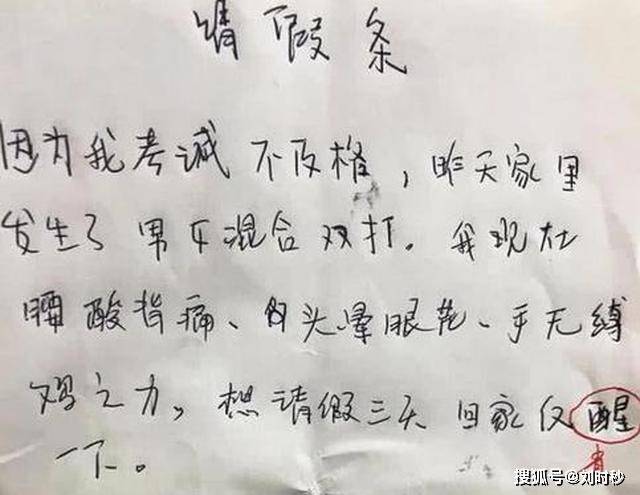 请假条
因为我考诫不及格，昨天家里
发生了男女混合双打。我现在
腰酸背痛、头晕眼花、手无缚
鸡之力，想请假三天回家仅醒
一下。
省
搜狐号@刘时秒